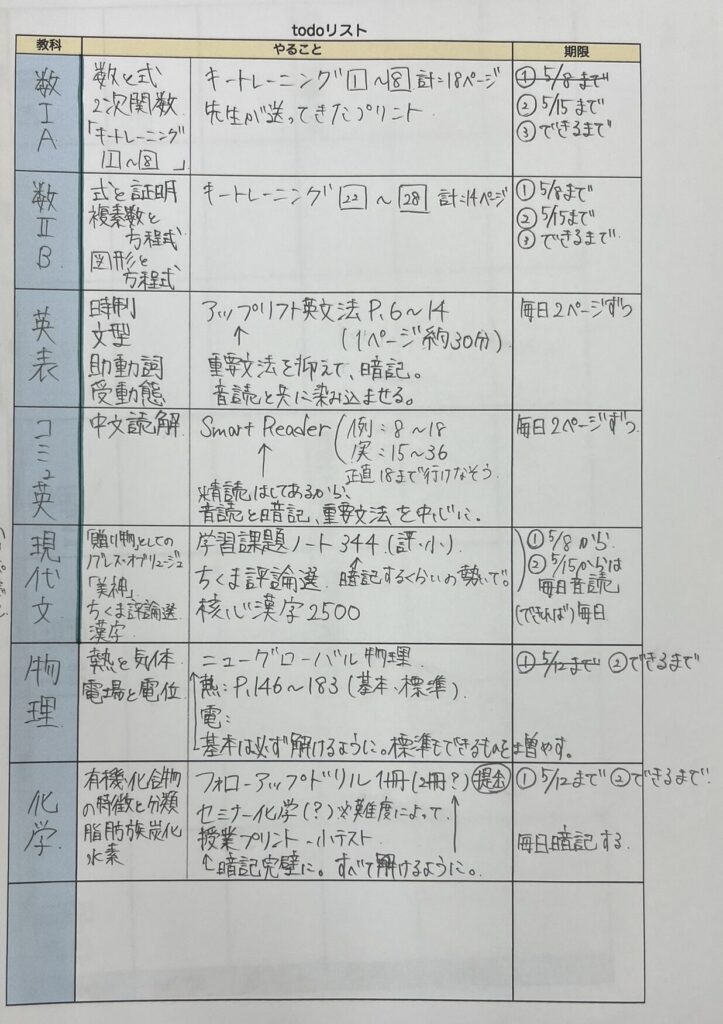 todoリスト
教科 やること 期限
数ⅠA
数と式
2次関数
「キートレーニング
1～8」
キートレーニング 1 ～ 8 計:18ページ
先生が送ってきたプリント
① 5/8まで
② 5/15まで
③ できるまで
数ⅡB
式と証明
複素数と
方程式
図形と
方程式
キートレーニング 22 ～ 28 計:14ページ
① 5/8まで
② 5/15まで
③ できるまで.
英表
時制
文型
助動詞
受動態
アップリフト英文法 P.6～14
↑ (1ページ約30分).
重要文法を抑えて、暗記。
音読と共に染み込ませる。
毎日2ページずつ
コミュ英
中文読解
Smart Reader (例:8～18
実:15～36
↑ 正直18まで行けなそう.
精読はしてあるから、
音読と暗記、重要文法を中心に。
毎日2ページずつ.
現代文
「贈り物」としての
ノブレス・オブリージュ
「美神」
ちくま評論選
漢字.
学習課題ノート 344 (評・小).
ちくま評論選. 暗記するくらいの勢いで。
核心漢字2500
① 5/8から.
② 5/15からは
毎日音読
(できれば) 毎日
物理
熱と気体
電場と電位
ニューグローバル物理.
熱:P.146～183 (基本、標準).
電:
基本は必ず解けるように。標準もできるものを増やす。
① 5/12まで ② できるまで
化学
有機化合物
の特徴と分類
脂肪族炭化
水素
フォローアップドリル1冊(2冊?) 提出
セミナー化学(?) ※難度によって.
授業プリント - 小テスト
↑暗記完璧に。すべて解けるように。
① 5/12まで ② できるまで.
毎日暗記する.